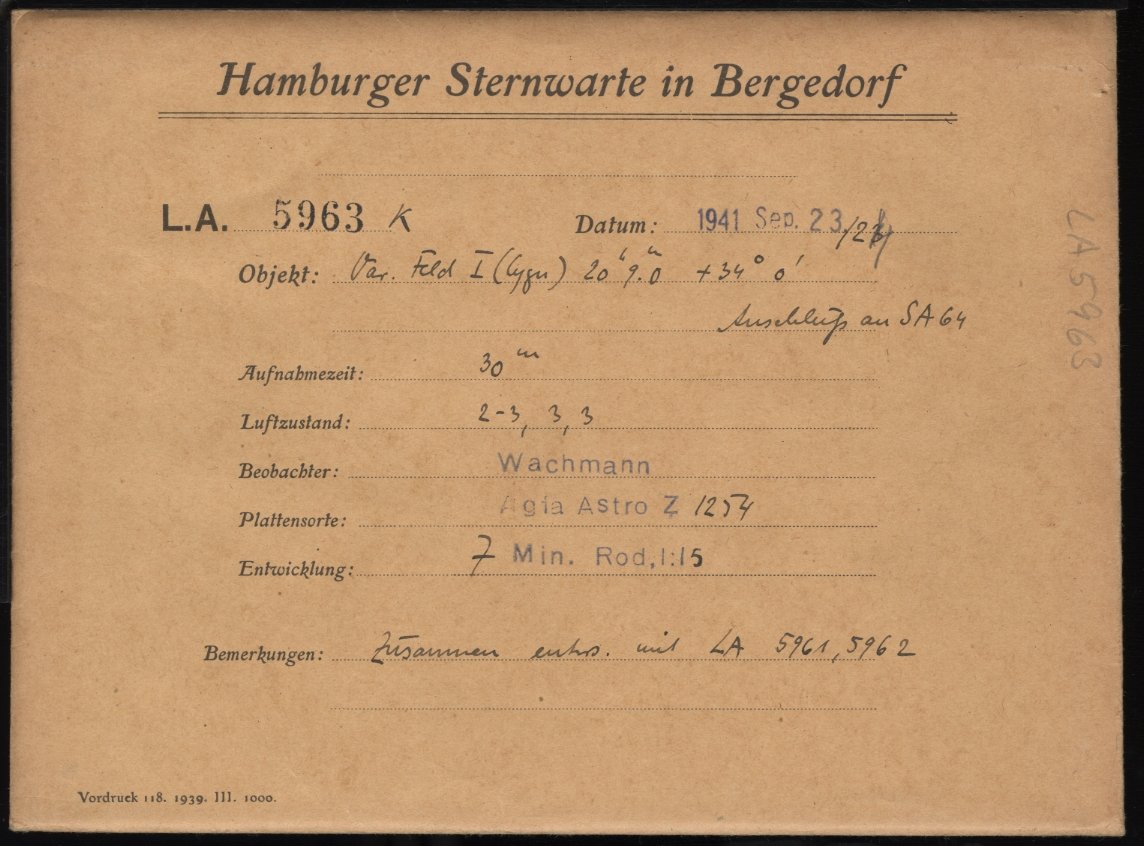 Hamburger Sternwarte in Bergedorf
L.A. 5963 K
Datum: 1941 Sep. 23/24
Objekt: Var. Feld I (Cygn) 20ʰ 9.ᵐ0 + 34° 0'
Anschluß an SA 64
Aufnahmezeit: 30ᵐ
Luftzustand: 2-3, 3, 3
Beobachter: Wachmann
Plattensorte: Agfa Astro Z 1254
Entwicklung: 7 Min. Rod, 1:15
Bemerkungen: Zusammen entw. mit LA 5961, 5962
Vordruck 118. 1939. III. 1000.
LA 5963